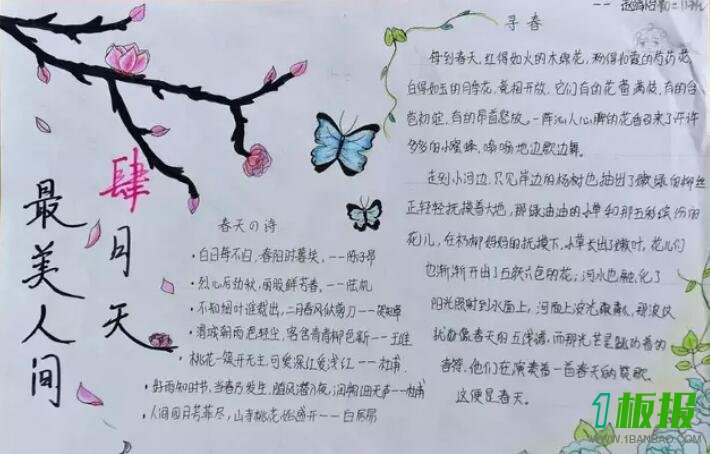 最美人间
肆月天
春天の诗
·白日每不归,春阳时暮矣,——陈子昂
·烈心厉劲秋,丽服鲜芳春,——陆机
·不知细叶谁裁出,二月春风似剪刀——贺知章
·渭城朝雨浥轻尘,客舍青青柳色新——王维
·桃花一簇开无主,可爱深红爱浅红——杜甫
·好雨知时节,当春乃发生,随风潜入夜,润物细无声——杜甫
·人间四月芳菲尽,山寺桃花始盛开——白居易
寻春
每到春天,红得如火的木棉花,粉得如霞的芍药花,
白得如玉的月季花,竞相开放,它们有的花蕾满枝,有的含
苞初绽,有的昂首怒放。一阵沁人心脾的花香引来了许许
多多的小蜜蜂,嗡嗡地边歌边舞。
走到小河边,只见岸边的杨树也抽出了嫩绿的柳丝
正轻轻抚摸着大地,那绿油油的小草和那五彩缤纷的
花儿,在杨柳妈妈的抚摸下,小草长出了嫩叶,花儿们
也渐渐开出了五颜六色的花;河水也融化了
阳光照射到水面上,河面上波光粼粼,那波纹
就好像春天的五线谱,而那光芒是跳动着的
音符,他们在演奏着一首春天的赞歌。
这便是春天。
1板报
WWW.1BANBAO.COM